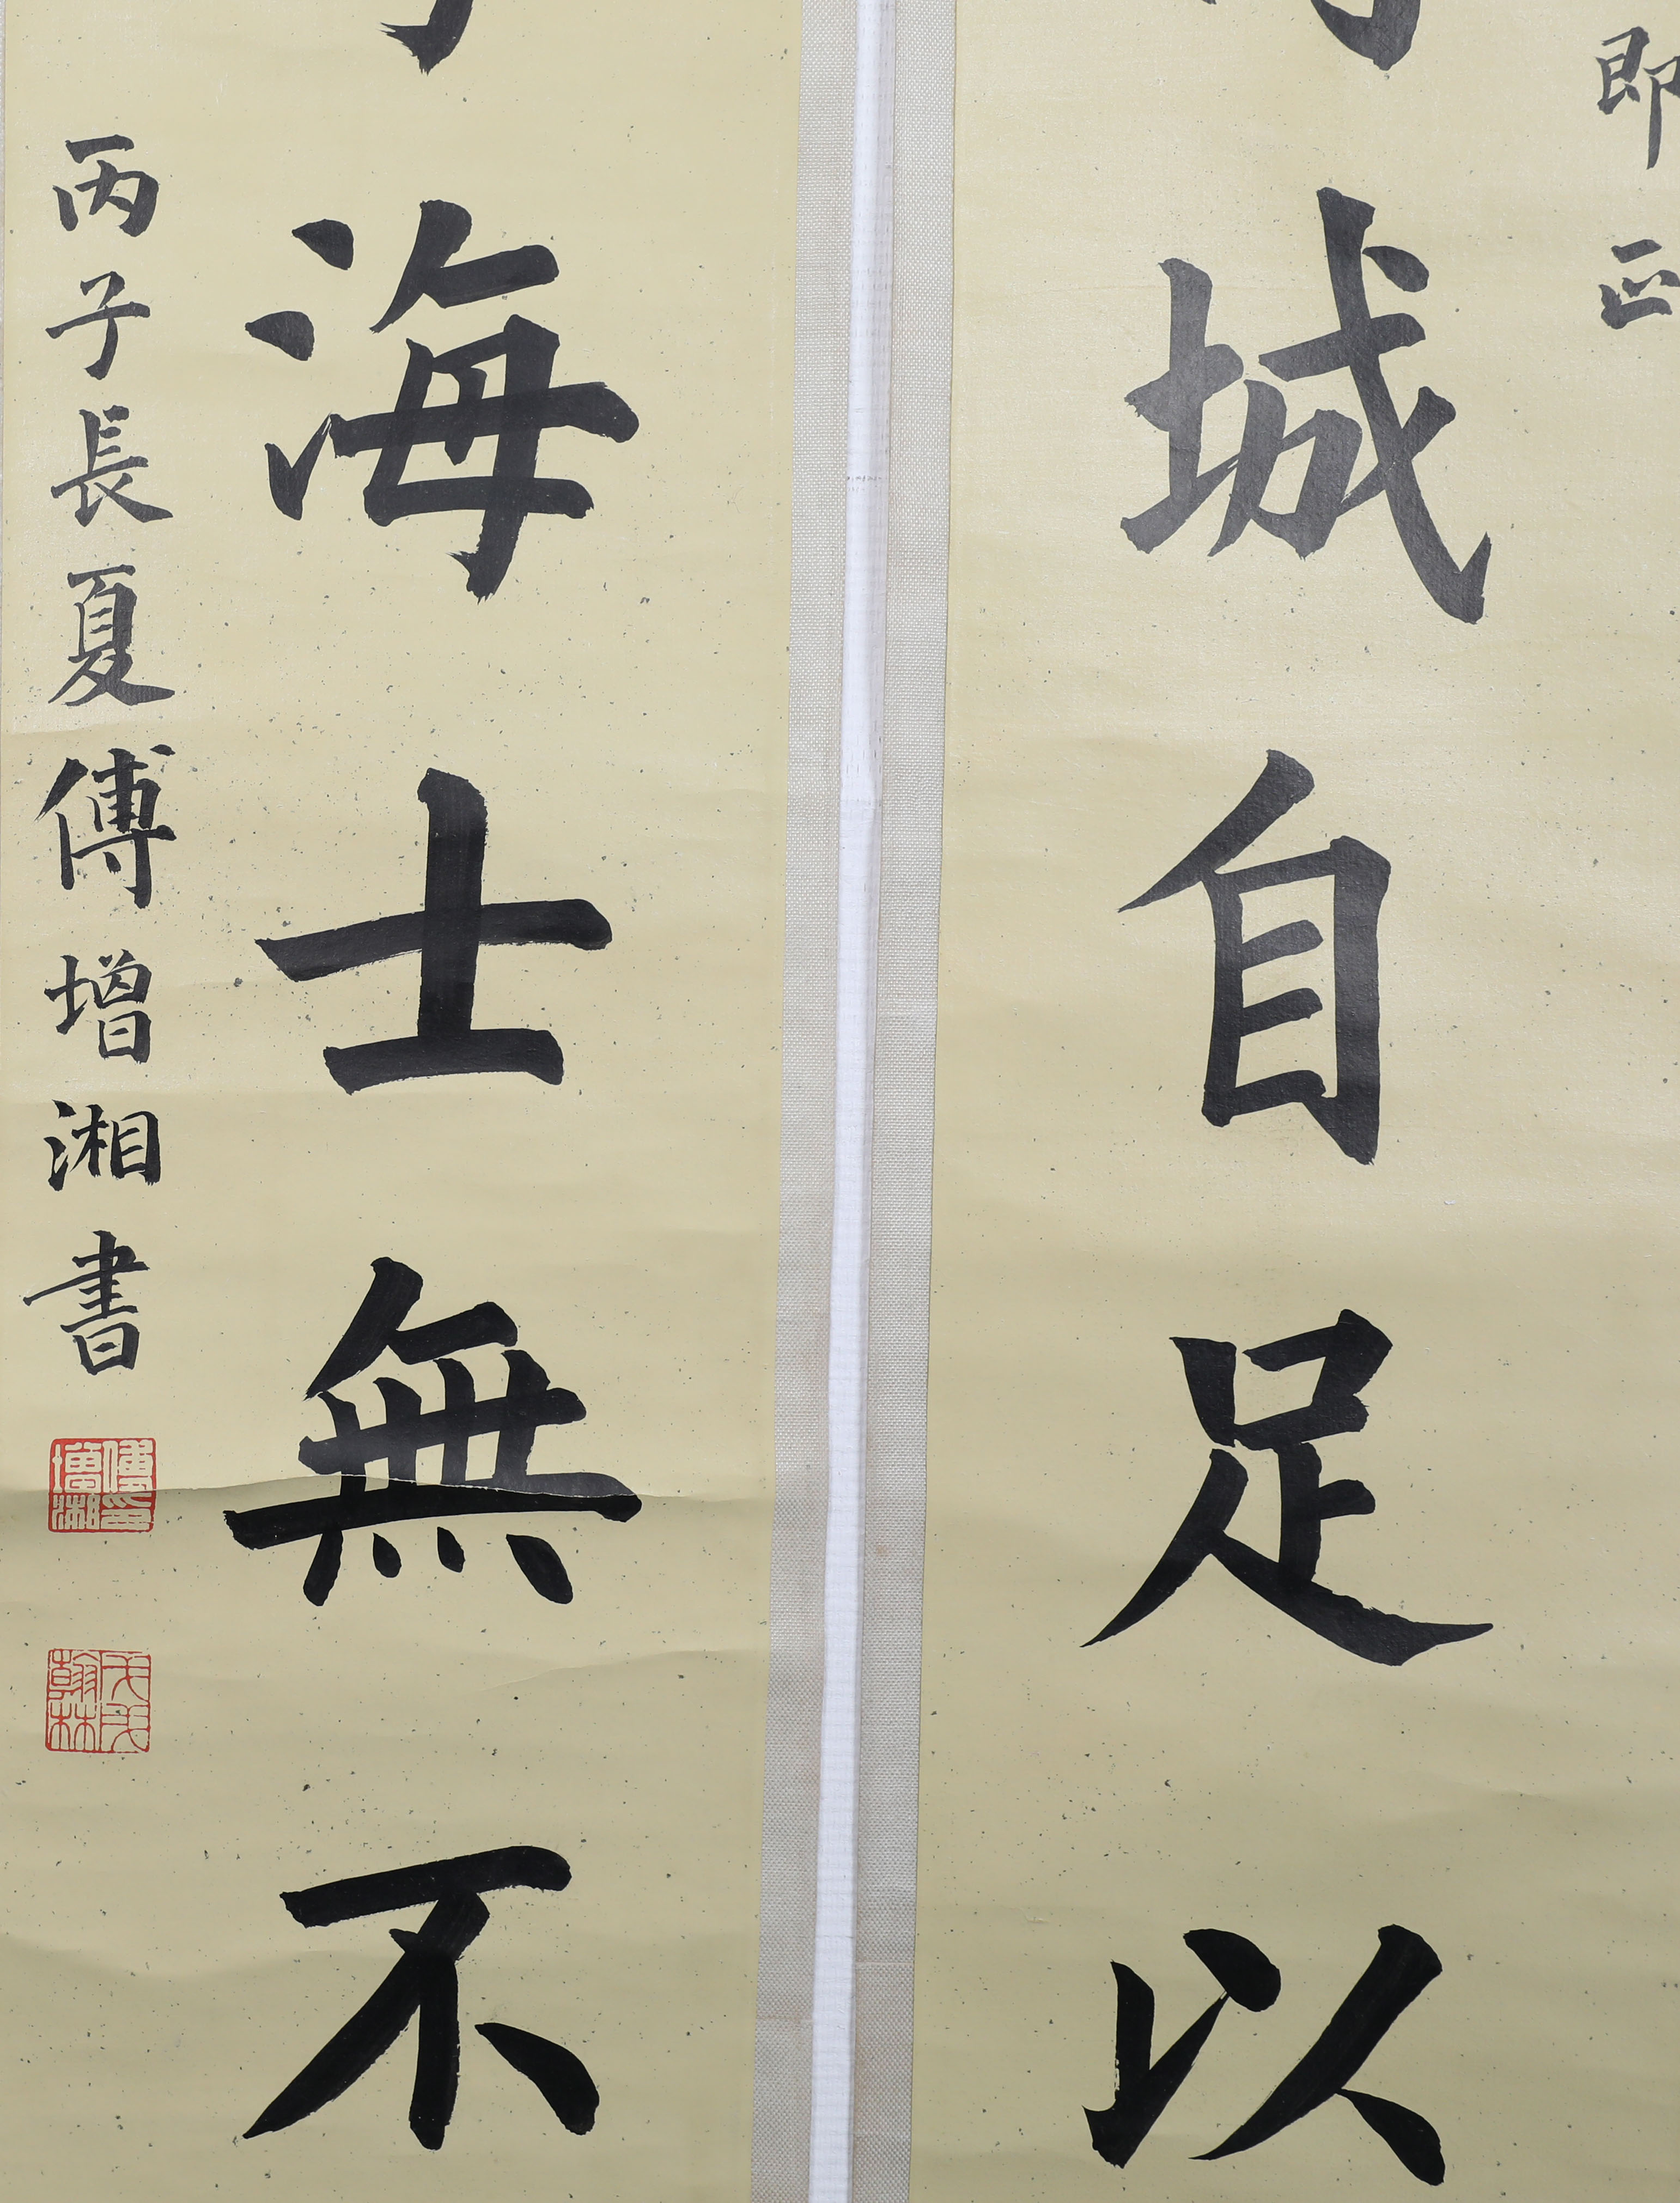 即正
城自足以
海士無不
丙子長夏傅增湘書
傅印增湘
戊戌翰林